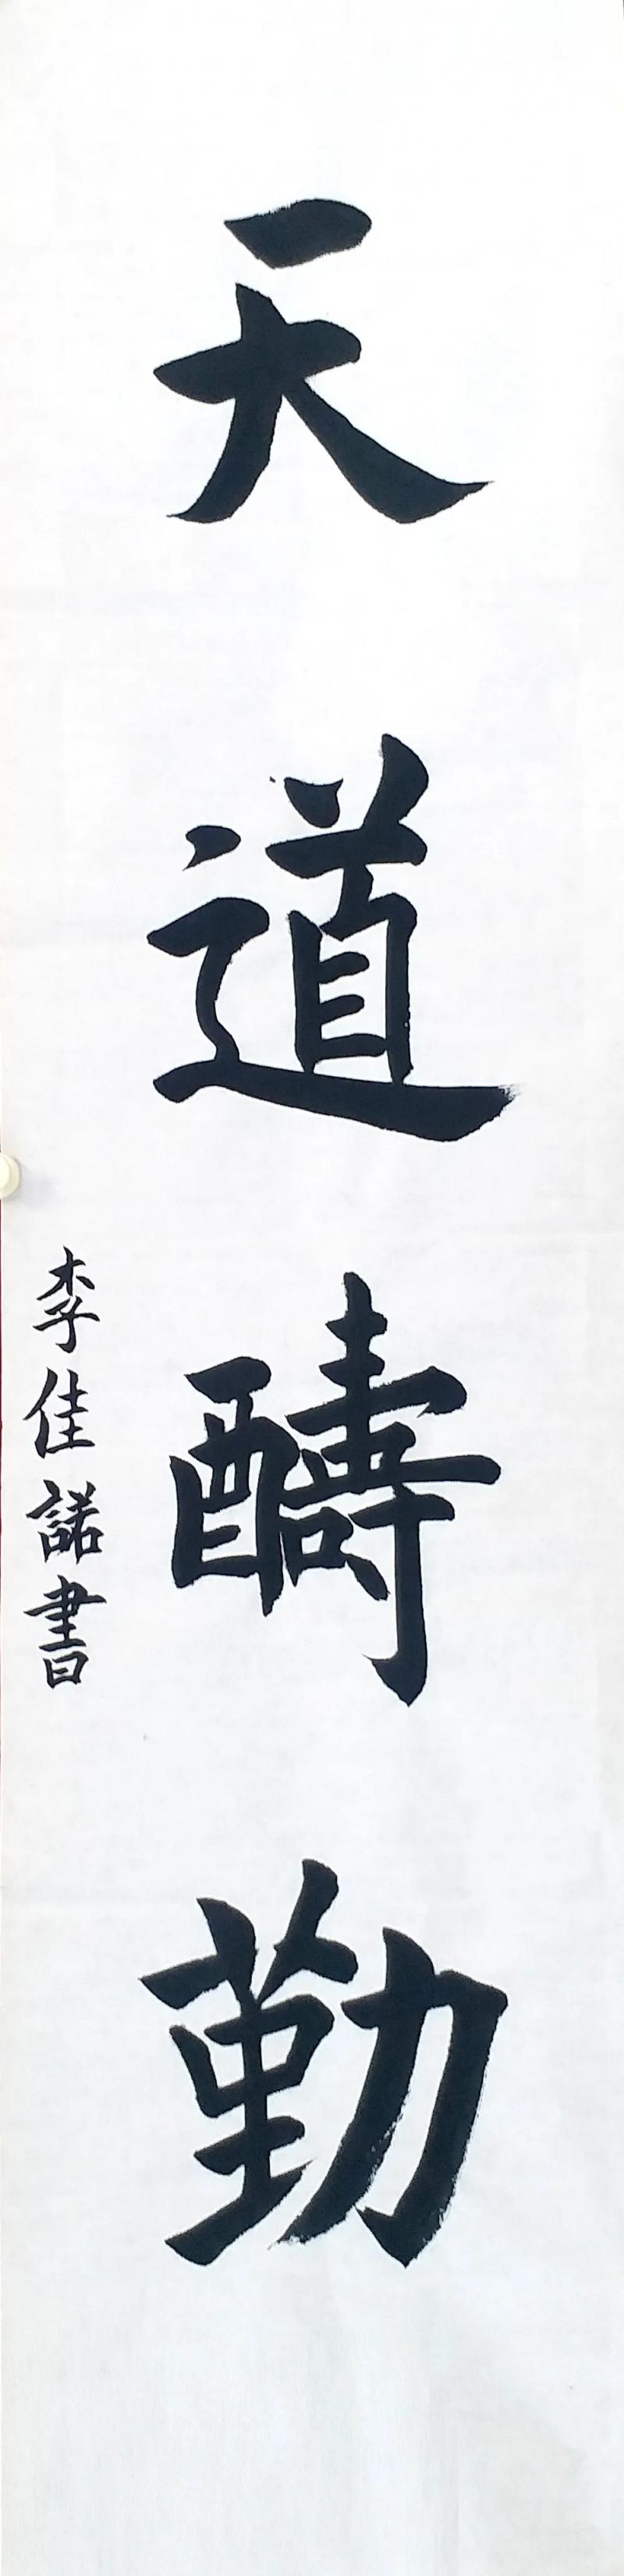 天道醻勤
李佳諾書